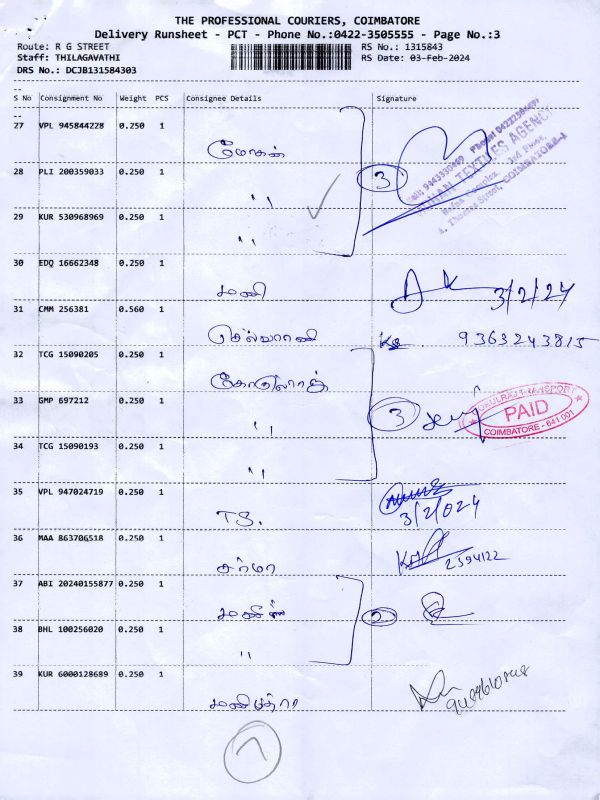 THE PROFESSIONAL COURIERS, COIMBATORE
Delivery Runsheet - PCT - Phone No.:0422-3505555 - Page No.:3
Route: R G STREET
RS No.: 1315843
Staff: THILAGAVATHI
RS Date: 03-Feb-2024
DRS No.: DCJB131584303
S No Consignment No Weight PCS Consignee Details Signature
27 VPL 945844228 0.250 1
மோகன்
28 PLI 200359033 0.250 1
"
3
29 KUR 530968969 0.250 1
"
30 EDQ 16662348 0.250 1
மணி
3/2/24
31 CMM 256381 0.560 1
செல்வராணி
9363243815
32 TCG 15090205 0.250 1
கோகுல்ராஜ்
33 GMP 697212 0.250 1
"
3
PAID
COIMBATORE - 641 001
34 TCG 15090193 0.250 1
"
35 VPL 947024719 0.250 1
T.S.
3/2/024
36 MAA 863706518 0.250 1
சர்மா
2594122
37 ABI 20240155877 0.250 1
2
38 BHL 100256020 0.250 1
"
39 KUR 6000128689 0.250 1
7